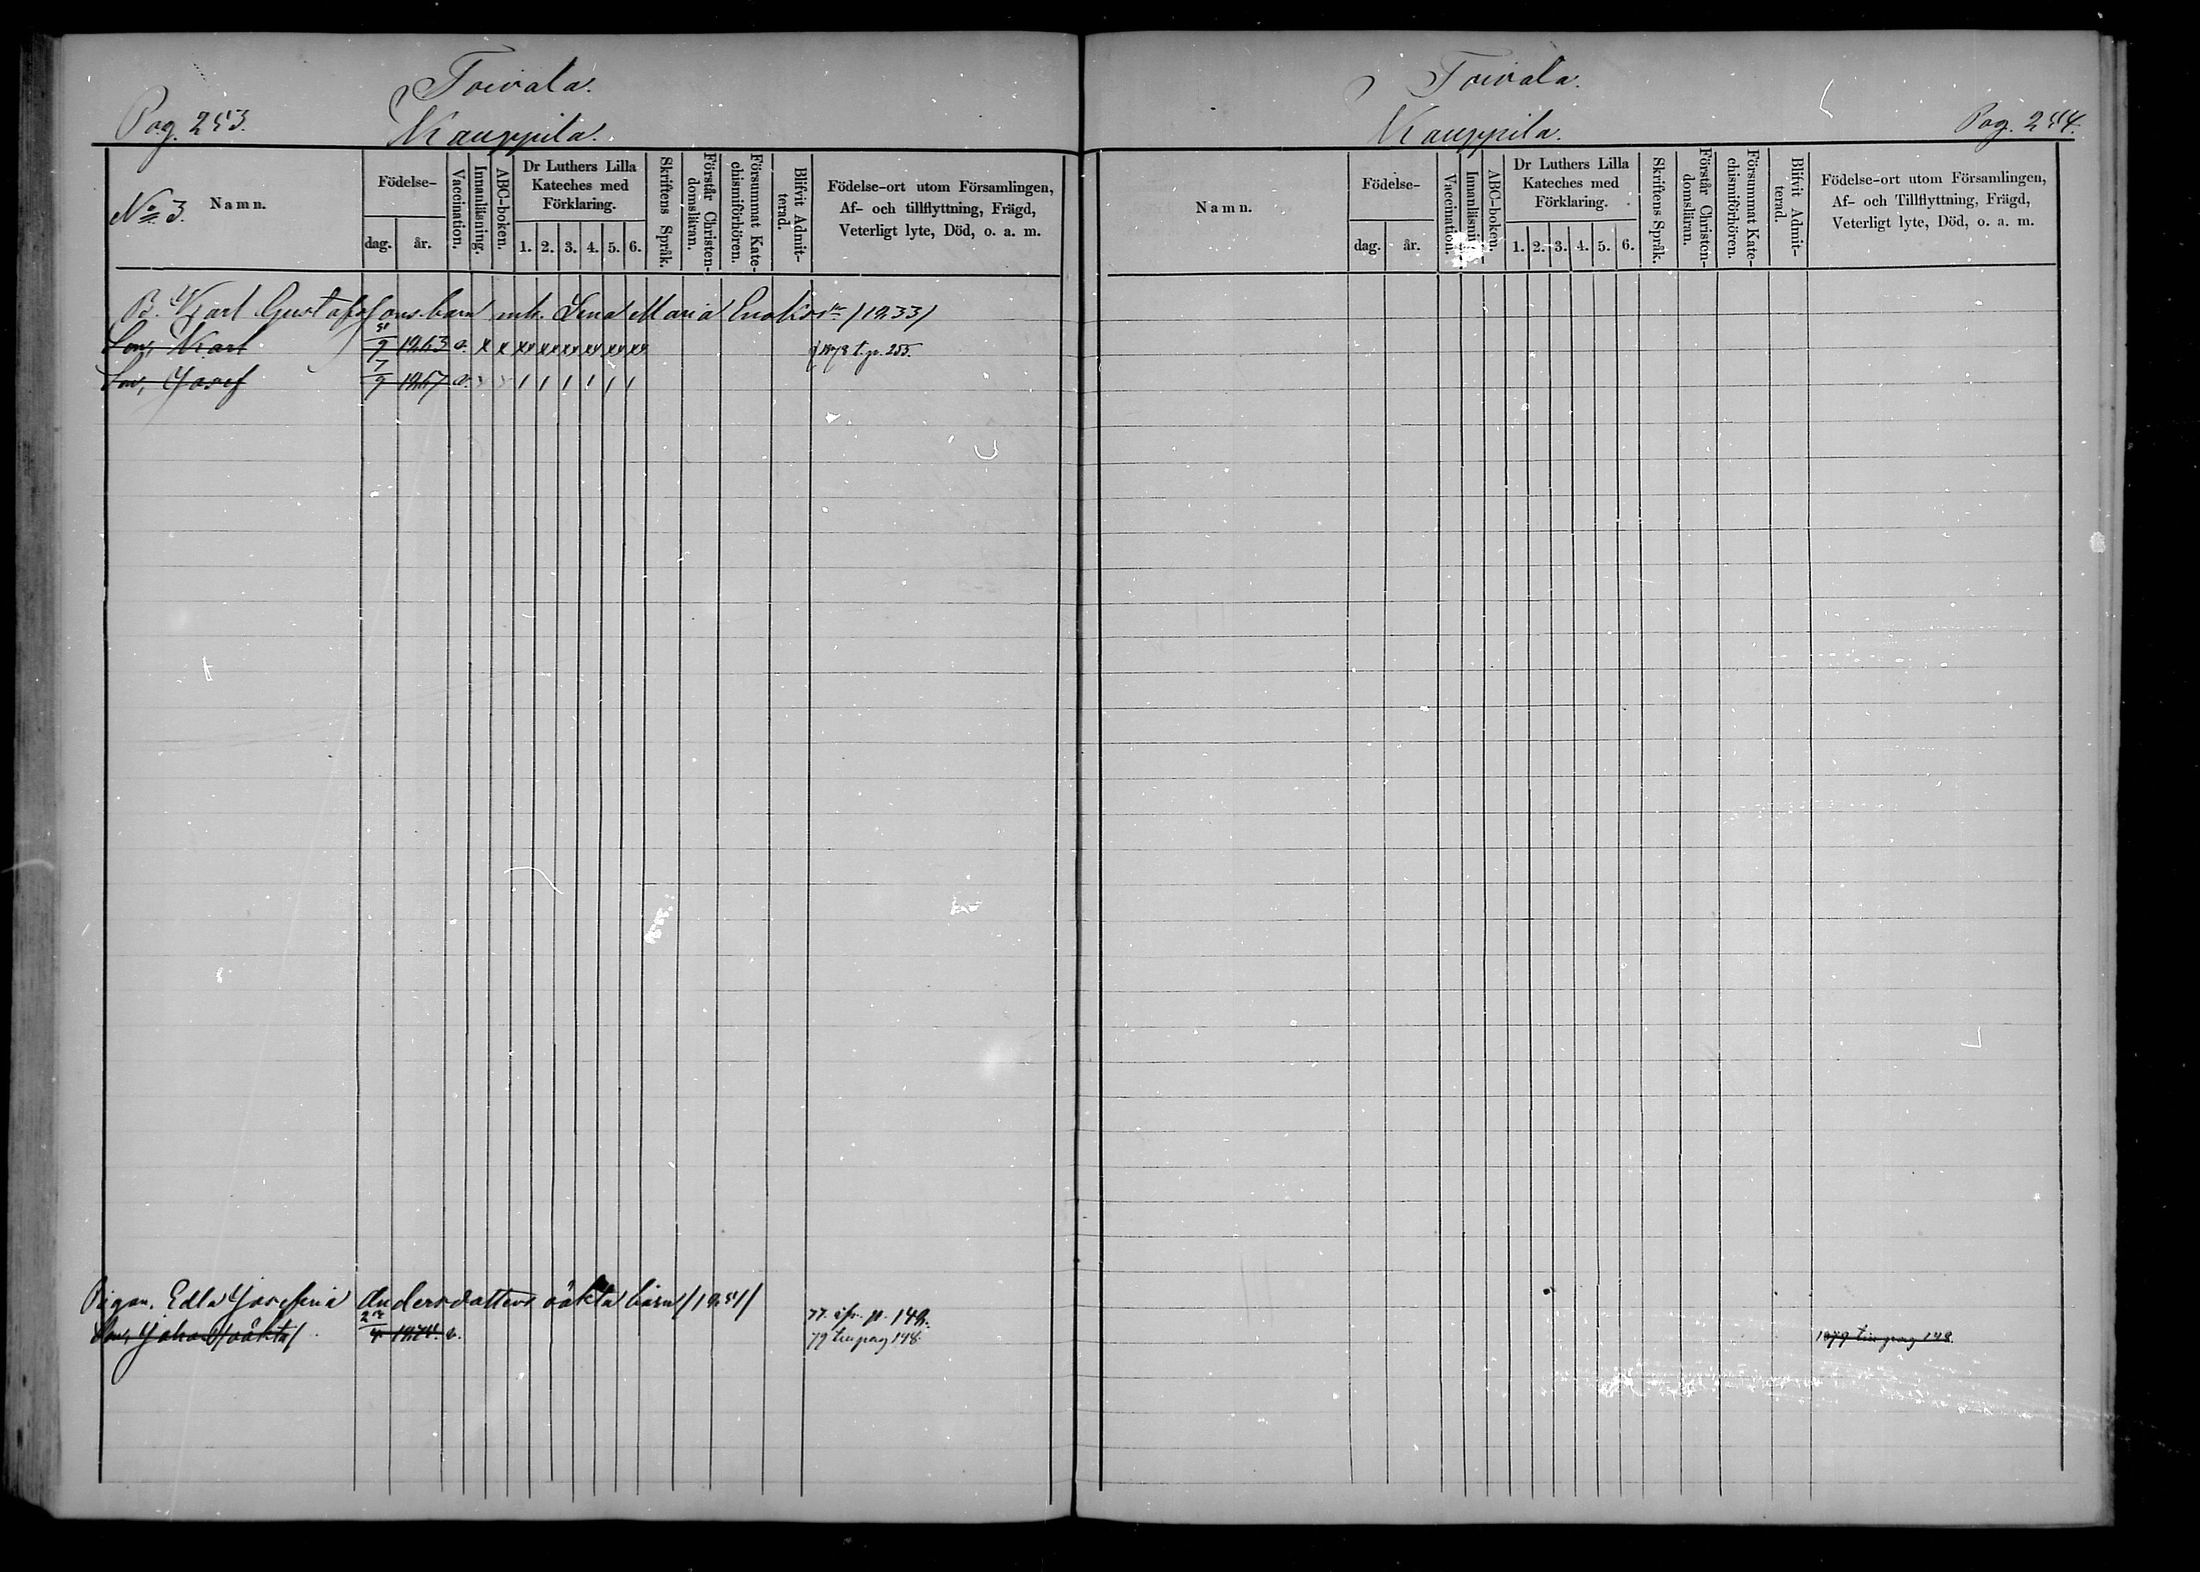 Toivala.
Pag. 253. Kauppila.
No 3. Namn.
Födelse-
dag. år.
Vaccination.
Innanläsning.
ABC-boken.
Dr Luthers Lilla
Kateches med
Förklaring.
1. 2. 3. 4. 5. 6.
Skriftens Språk.
Förstår Christen-
domsläran.
Försummat Kate-
chismiförhören.
Blifvit Admit-
terad.
Födelse-ort utom Församlingen,
Af- och tillflyttning, Frägd,
Veterligt lyte, Död, o. a. m.
B. Karl Gustafssons barn m. h. Lena Maria Enoksdr /1833/
Son, Karl 9 1863 v. x x xx xx xx xx xx xx 1878 t. p. 255.
Son, Josef 7/9 1867 v.
Pigan, Edla Josefina Andersdotters oäkta barn /1851/
77. ifr. p. 149.
Son, Johan /oäkta/ v. 79 till pag 148.
Toivala.
Kauppila. Pag. 254.
Namn.
Födelse-
dag. år.
Vaccination.
Innanläsning.
ABC-boken.
Dr Luthers Lilla
Kateches med
Förklaring.
1. 2. 3. 4. 5. 6.
Skriftens Språk.
Förstår Christen-
domsläran.
Försummat Kate-
chismiförhören.
Blifvit Admit-
terad.
Födelse-ort utom Församlingen,
Af- och Tillflyttning, Frägd,
Veterligt lyte, Död, o. a. m.
1879 till pag 148.